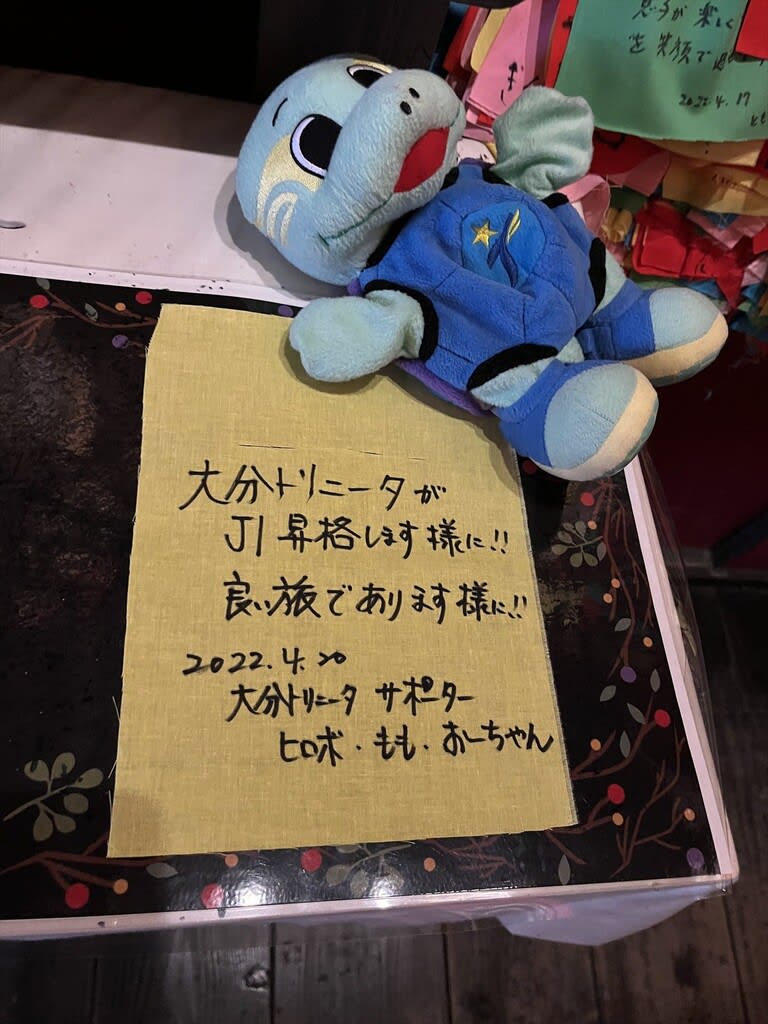 大分トリニータが
J1昇格します様に!!
良い旅であります様に!!
2022.4.20
大分トリニータ サポーター
ヒロボ・もも・おーちゃん
が楽しく
を笑顔で
2022.4.17
とも